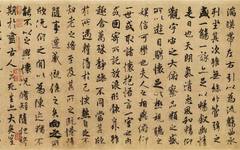 湍暎帶左右引以為流觴曲水
列坐其次雖無絲竹管弦之
盛一觴一詠亦足以暢敘幽情
是日也天朗氣清惠風和暢仰
觀宇宙之大俯察品類之盛
所以遊目騁懷足以極視聽之
娛信可樂也夫人之相與俯仰
一世或取諸懷抱悟言一室之內
或因寄所託放浪形骸之外雖
趣舍萬殊靜躁不同當其欣
於所遇蹔得於己快然自足不
知老之將至及其所之既惓情
隨事遷感慨係之矣向之所
欣俛仰之閒以為陳迹猶不
能不以之興懷況脩短隨化終
期於盡古人云死生亦大矣豈